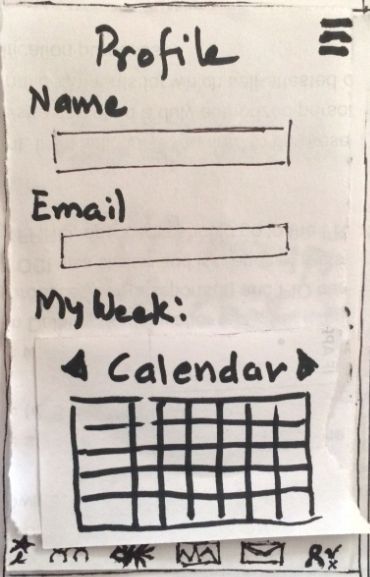 Profile
Name
Email
My Week:
Calendar